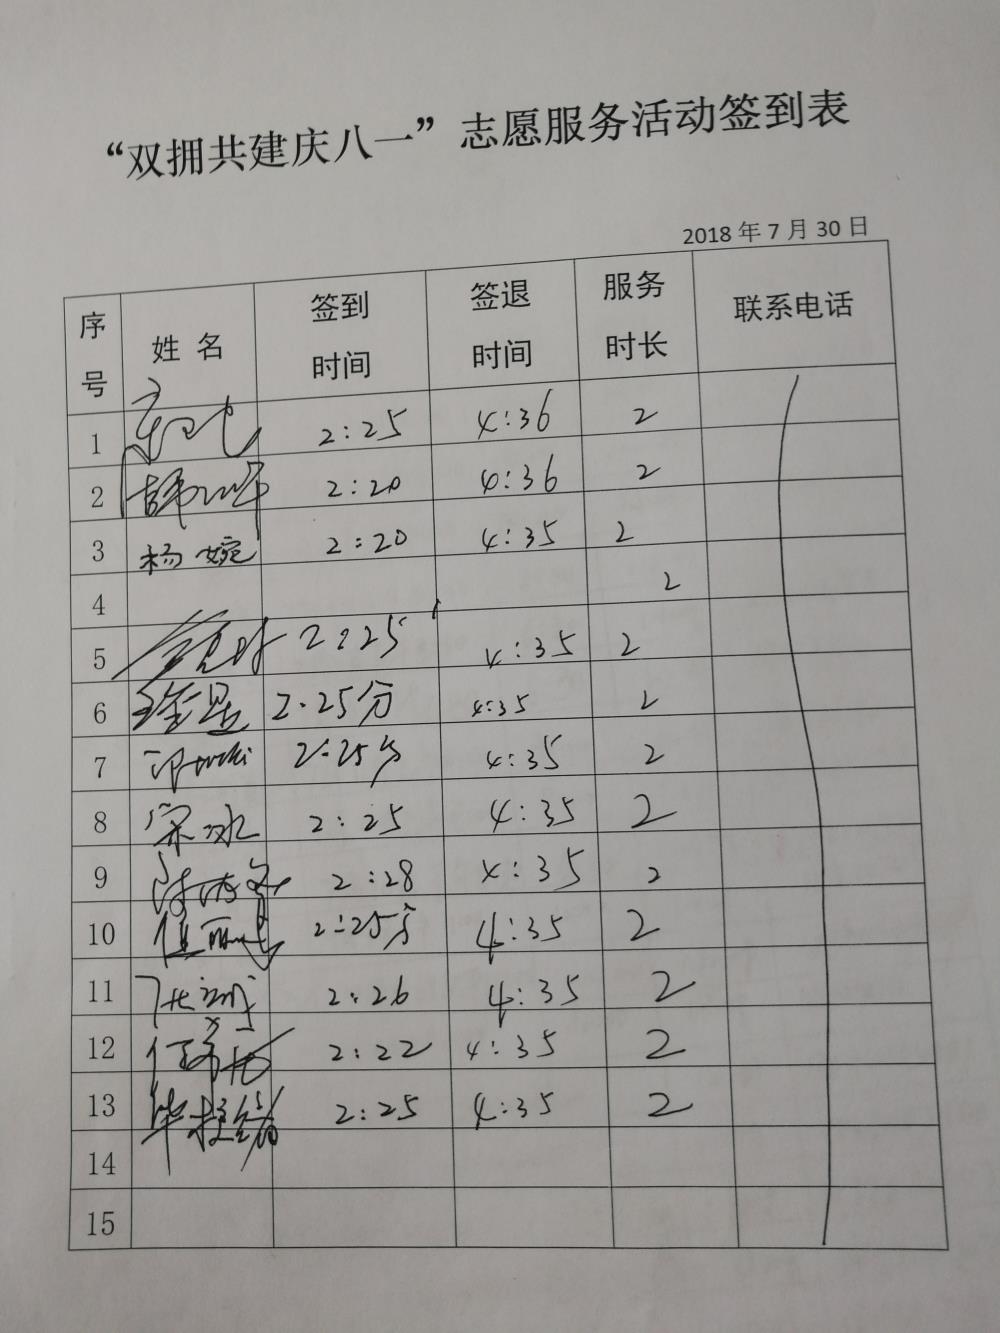 “双拥共建庆八一”志愿服务活动签到表
2018 年 7 月 30 日
序号 姓 名 签到时间 签退时间 服务时长 联系电话
1 2:25 4:36 2
2 2:20 4:36 2
3 杨婉 2:20 4:35 2
4 2
5 2:25 4:35 2
6 2.25分 4:35 2
7 2:25分 4:35 2
8 宋冰 2:25 4:35 2
9 2:28 4:35 2
10 2:25分 4:35 2
11 2:26 4:35 2
12 2:22 4:35 2
13 2:25 4:35 2
14
15